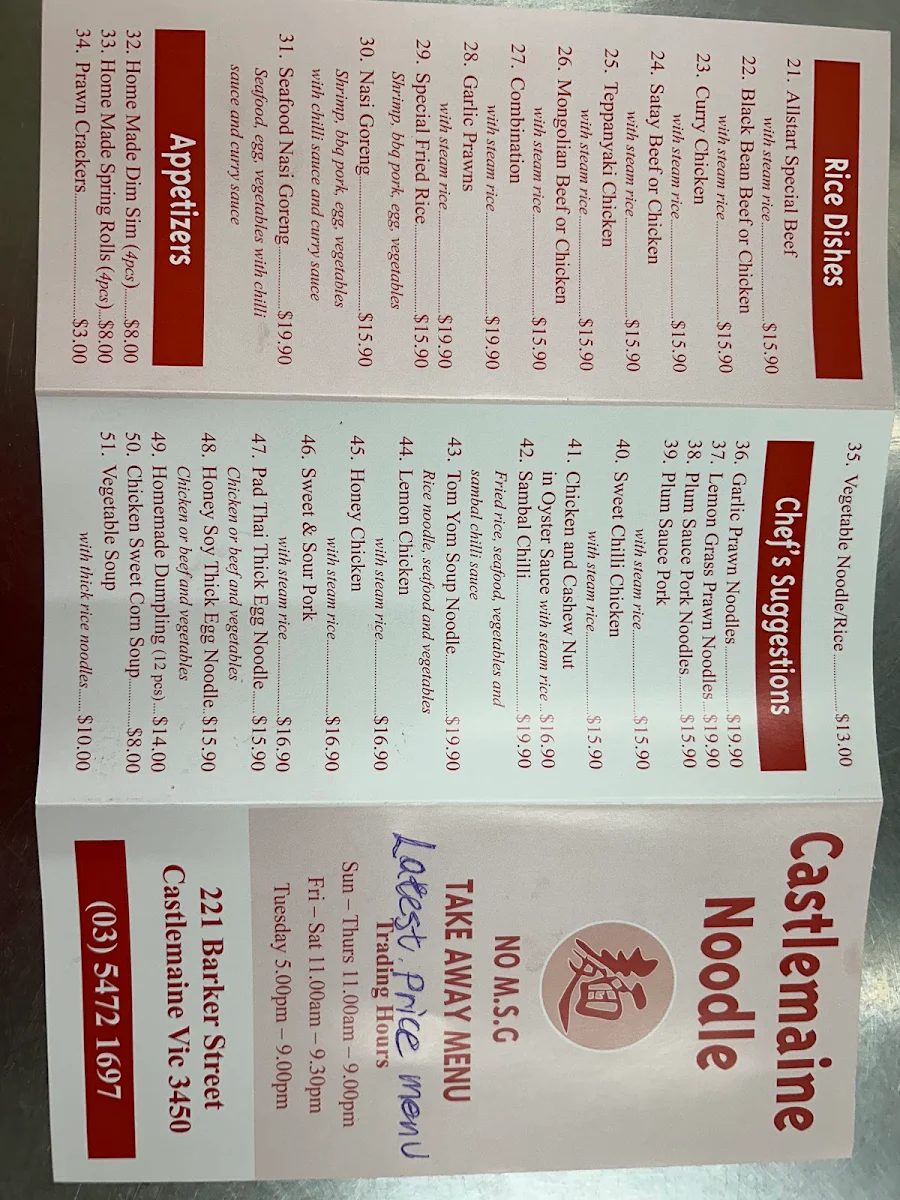 Rice Dishes
21. Allstart Special Beef
with steam rice...............$15.90
22. Black Bean Beef or Chicken
with steam rice...............$15.90
23. Curry Chicken
with steam rice...............$15.90
24. Satay Beef or Chicken
with steam rice...............$15.90
25. Teppanyaki Chicken
with steam rice...............$15.90
26. Mongolian Beef or Chicken
with steam rice...............$15.90
27. Combination
with steam rice...............$19.90
28. Garlic Prawns
with steam rice...............$19.90
29. Special Fried Rice...............$15.90
Shrimp, bbq pork, egg, vegetables
30. Nasi Goreng...............$15.90
Shrimp, bbq pork, egg, vegetables
with chilli sauce and curry sauce
31. Seafood Nasi Goreng........$19.90
Seafood, egg, vegetables with chilli
sauce and curry sauce
Appetizers
32. Home Made Dim Sim (4pcs)....$8.00
33. Home Made Spring Rolls (4pcs)..$8.00
34. Prawn Crackers...............$3.00
35. Vegetable Noodle/Rice...........$13.00
Chef's Suggestions
36. Garlic Prawn Noodles..........$19.90
37. Lemon Grass Prawn Noodles..$19.90
38. Plum Sauce Pork Noodles.......$15.90
39. Plum Sauce Pork
with steam rice...............$15.90
40. Sweet Chilli Chicken
with steam rice...............$15.90
41. Chicken and Cashew Nut
in Oyster Sauce with steam rice..$16.90
42. Sambal Chilli...............$19.90
Fried rice, seafood, vegetables and
sambal chilli sauce
43. Tom Yom Soup Noodle..........$19.90
Rice noodle, seafood and vegetables
44. Lemon Chicken
with steam rice...............$16.90
45. Honey Chicken
with steam rice...............$16.90
46. Sweet & Sour Pork
with steam rice...............$16.90
47. Pad Thai Thick Egg Noodle....$15.90
Chicken or beef and vegetables
48. Honey Soy Thick Egg Noodle..$15.90
Chicken or beef and vegetables
49. Homemade Dumpling (12 pcs)..$14.00
50. Chicken Sweet Corn Soup........$8.00
51. Vegetable Soup
with thick rice noodles....$10.00
Castlemaine
Noodle
麵
NO M.S.G
TAKE AWAY MENU
Latest Price menu
Trading Hours
Sun – Thurs 11.00am – 9.00pm
Fri – Sat 11.00am – 9.30pm
Tuesday 5.00pm – 9.00pm
221 Barker Street
Castlemaine Vic 3450
(03) 5472 1697